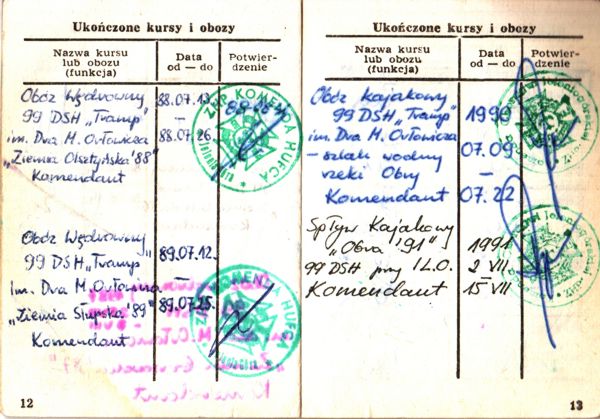 Ukończone kursy i obozy
Nazwa kursu
lub obozu
(funkcja)
Data
od — do
Potwier-
dzenie
Obóz Wędrowny
99 DSH „Tramp”
im. Dra M. Orłowicza
„Ziemia Olsztyńska '88”
Komendant
88.07.13.
—
88.07.26.
ZHP KOMENDA HUFCA
Obóz Wędrowny
99 DSH „Tramp”
im. Dra M. Orłowicza
„Ziemia Słupska '89”
Komendant
89.07.12.
—
89.07.25.
HUFCA
Komendant
12
Ukończone kursy i obozy
Nazwa kursu
lub obozu
(funkcja)
Data
od — do
Potwier-
dzenie
Obóz kajakowy
99 DSH „Tramp”
im. Dra M. Orłowicza
– szlak wodny
rzeki Obry
Komendant
1990
07.09
—
07.22
Spływ Kajakowy
„Obra '91”
99 DSH przy I L.O.
Komendant
1991
2 VII
—
15 VII
13